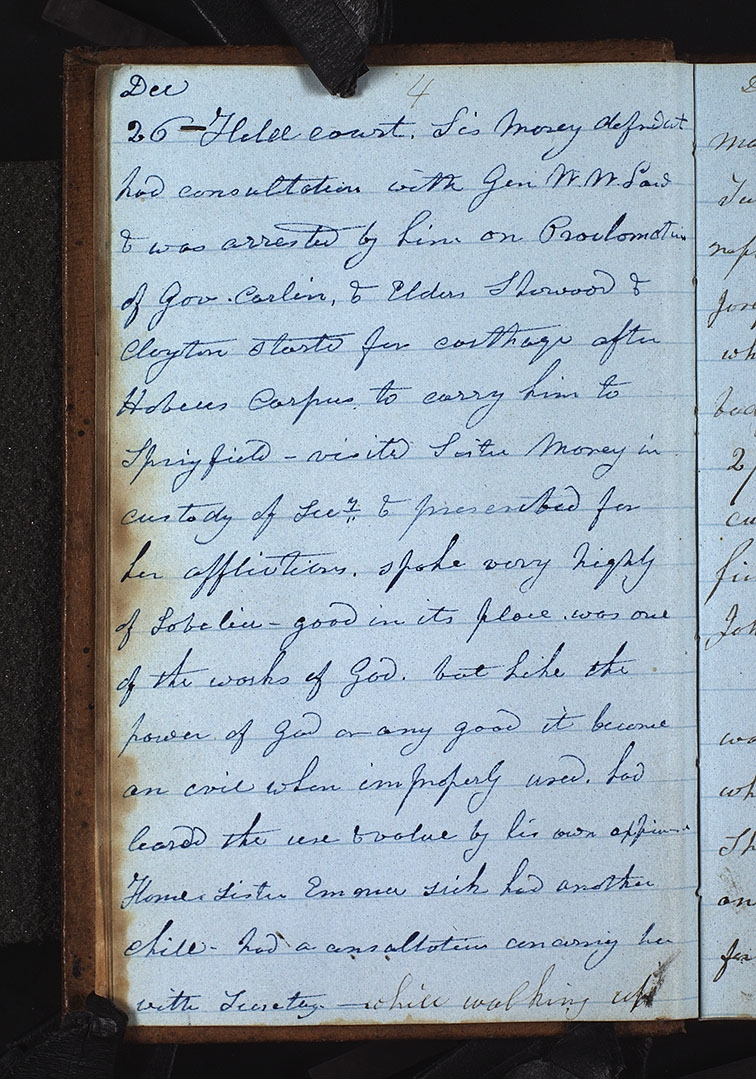 Dec
4
26 - Held court. Sis Morey defndat
had consultation with Gen W. W. Law
& was arrested by him on Proclomation
of Gov. Carlin, & Elders Sherwood &
Clayton starte for carthage after
Habeus Corpus. to carry him to
Springfield - visited Sister Morey in
custody of Secy. & prescribed for
her afflictions. spoke very highly
of Lobelia - good in its place. was one
of the works of God. but like the
power of God or any good it become
an evil when improperly used. had
leared the use & value by his own
Home. Sister Emma sick had another
chill - had a consultation concerning her
with Secretay - while walking up